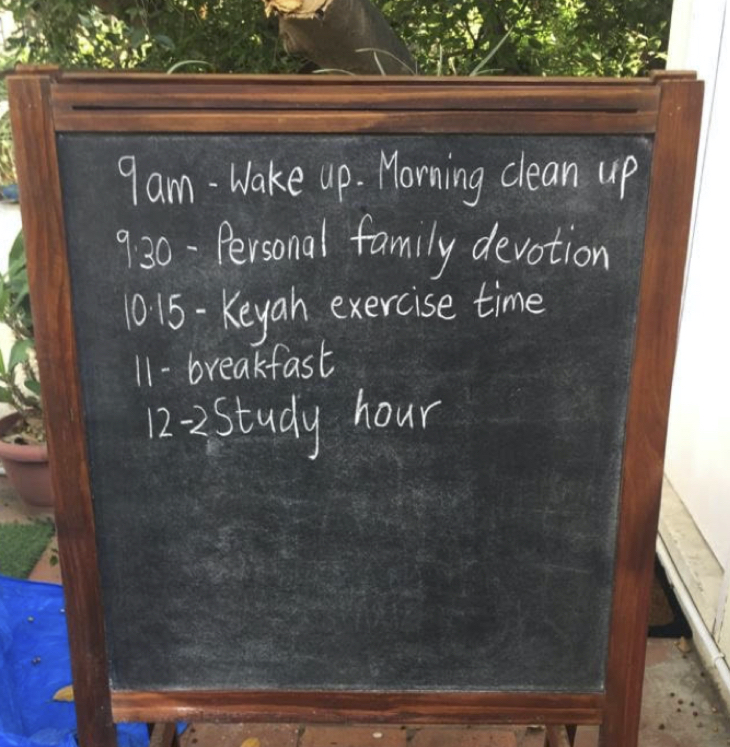 9am - Wake up - Morning clean up
9.30 - Personal family devotion
10.15 - Keyah exercise time
11 - breakfast
12-2 Study hour